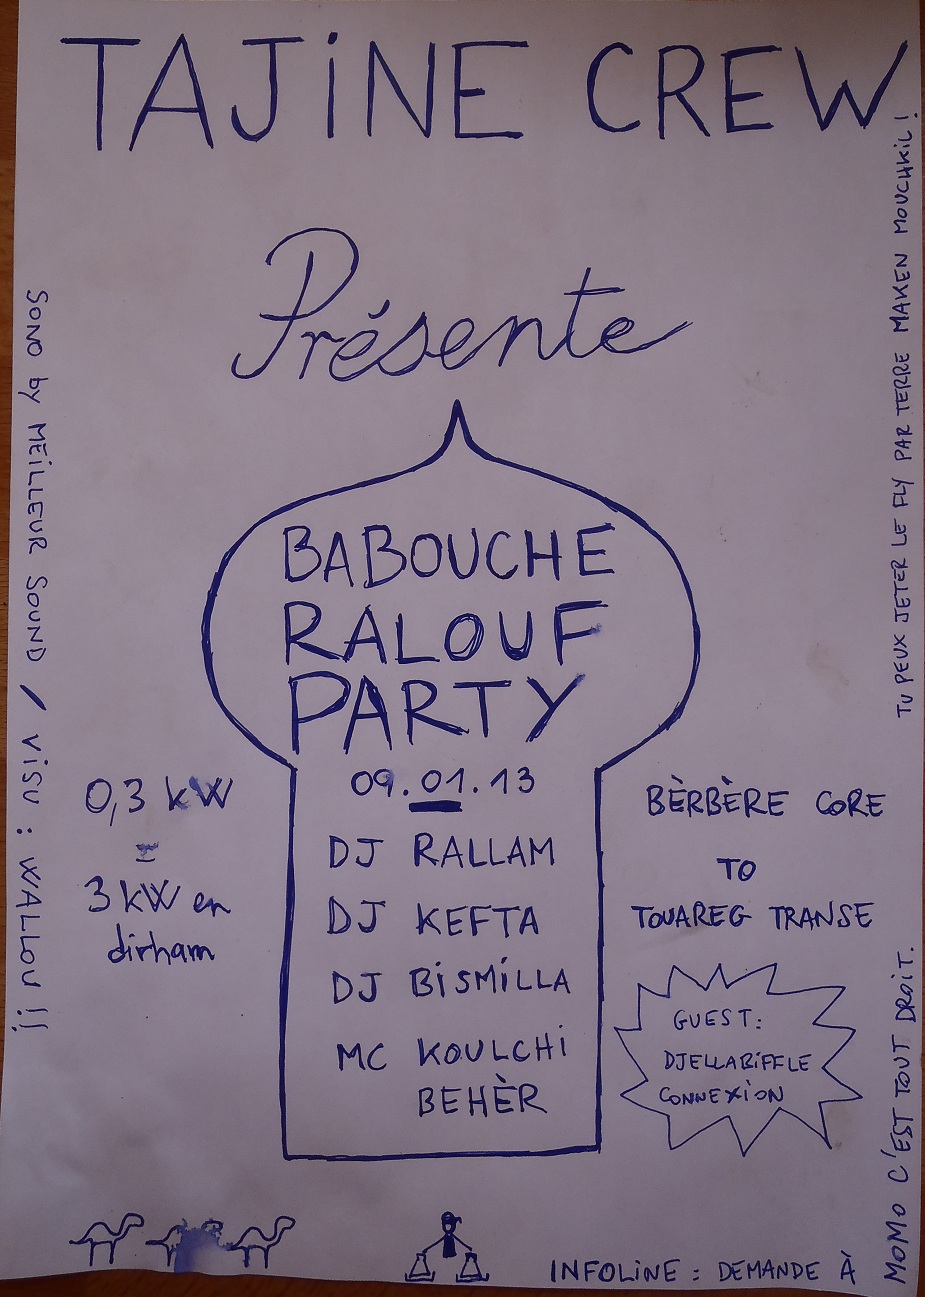 TAJiNE CREW
Présente
BABOUCHE
RALOUF
PARTY
09.01.13
DJ RALLAM
DJ KEFTA
DJ BiSMiLLA
MC KOULCHi
BEHÈR
0,3 kW
=
3 kW en
dirham
BÈRBÈRE CORE
TO
TOUAREG TRANSE
GUEST:
DJELLABiFFLE
CONNEXiON
SONO by MEiLLEUR SOUND / ViSU : WALLOU !!
TU PEUX JETER LE FLY PAR TERRE MAKEN MOUCHKiL!
INFOLiNE : DEMANDE À
MOMO C'EST TOUT DROiT.